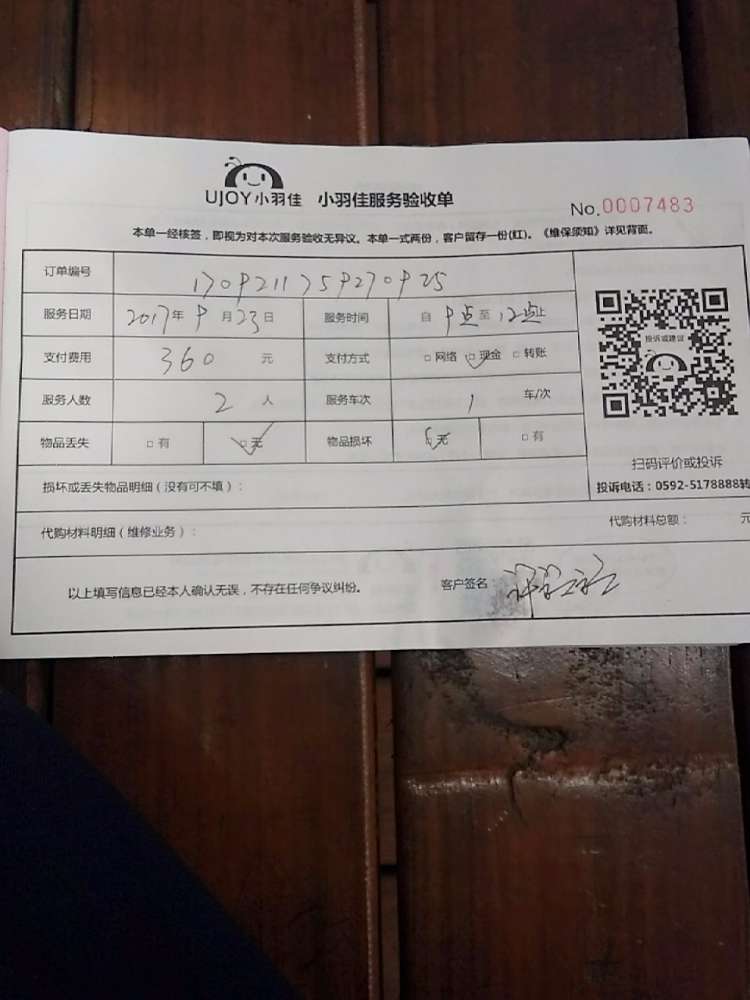 UJOY小羽佳 小羽佳服务验收单
No.0007483
本单一经核签，即视为对本次服务验收无异议。本单一式两份，客户留存一份(红)。《维保须知》详见背面。
订单编号 1709211759270925
服务日期 2017年9月23日 服务时间 自9点至12点止
支付费用 360 元 支付方式 □网络 □现金 □转账
服务人数 2 人 服务车次 1 车/次
物品丢失 □有 □无 物品损坏 □无 □有
投诉或建议
扫码评价或投诉
投诉电话：0592-5178888转
损坏或丢失物品明细（没有可不填）：
代购材料明细（维修业务）： 代购材料总额： 元
以上填写信息已经本人确认无误，不存在任何争议纠纷。 客户签名：